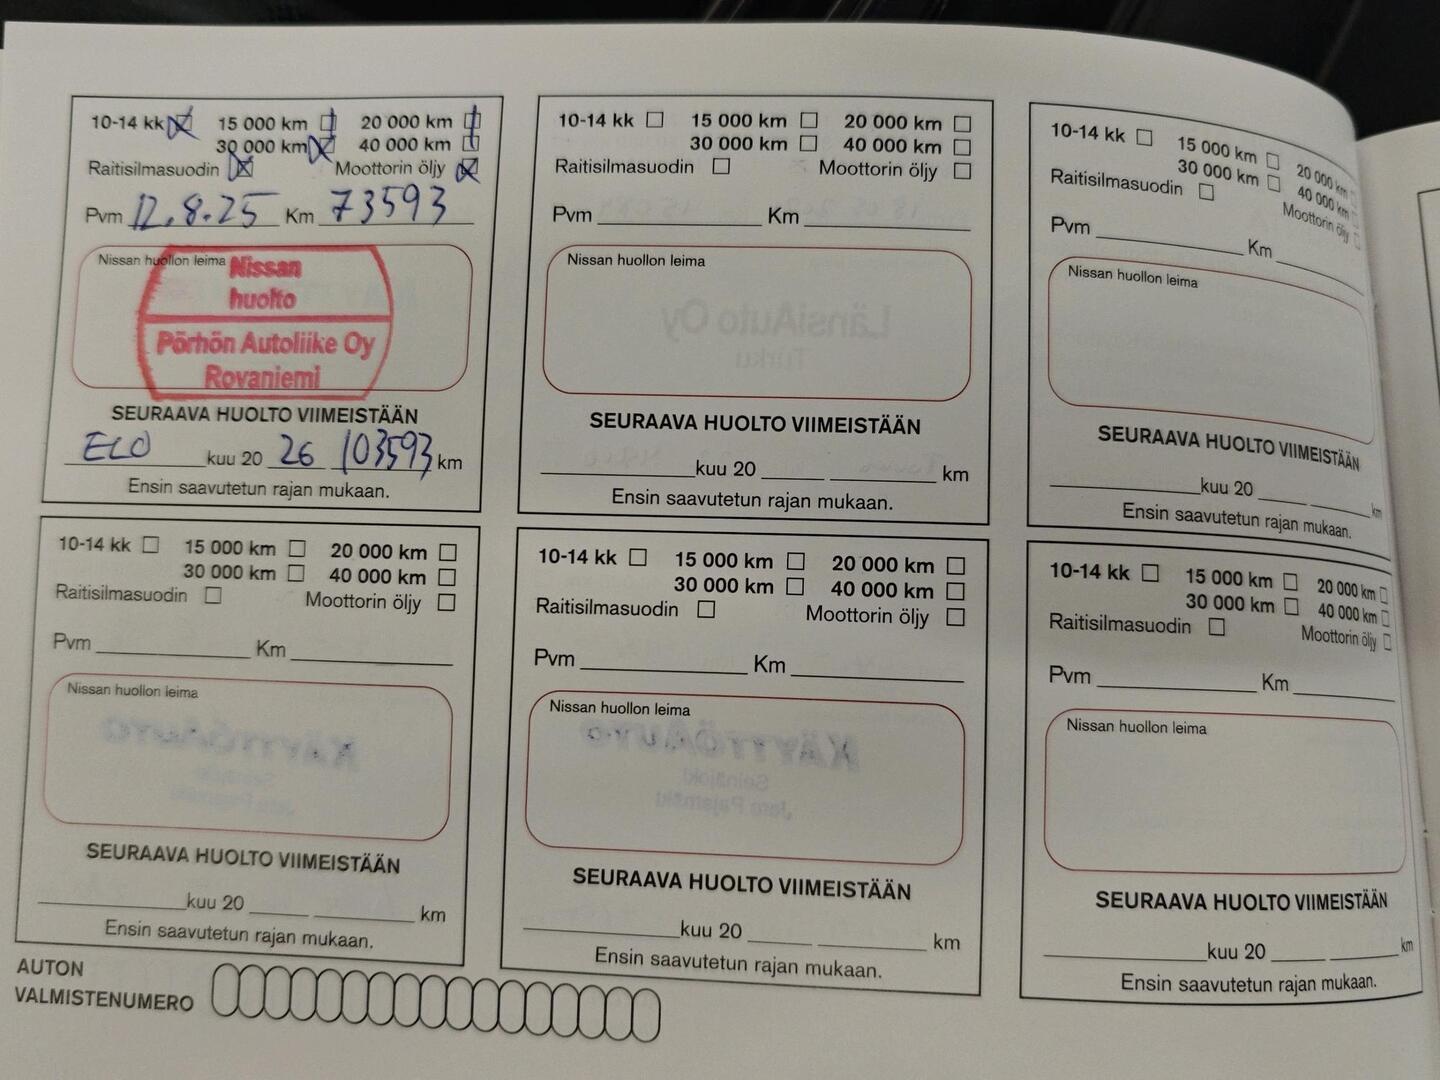 10-14 kk 15 000 km 20 000 km
30 000 km 40 000 km
Raitisilmasuodin Moottorin öljy
Pvm 12.8.25 Km 73593
Nissan huollon leima
Nissan
huolto
Pörhön Autoliike Oy
Rovaniemi
SEURAAVA HUOLTO VIIMEISTÄÄN
ELO kuu 20 26 103593 km
Ensin saavutetun rajan mukaan.
10-14 kk 15 000 km 20 000 km
30 000 km 40 000 km
Raitisilmasuodin Moottorin öljy
Pvm Km
Nissan huollon leima
LänsiAuto Oy
Turku
SEURAAVA HUOLTO VIIMEISTÄÄN
kuu 20 km
Ensin saavutetun rajan mukaan.
10-14 kk 15 000 km 20 000 km
30 000 km 40 000 km
Raitisilmasuodin Moottorin öljy
Pvm Km
Nissan huollon leima
SEURAAVA HUOLTO VIIMEISTÄÄN
kuu 20 km
Ensin saavutetun rajan mukaan.
10-14 kk 15 000 km 20 000 km
30 000 km 40 000 km
Raitisilmasuodin Moottorin öljy
Pvm Km
Nissan huollon leima
KÄYTTÖAUTO
Seinäjoki
SEURAAVA HUOLTO VIIMEISTÄÄN
kuu 20 km
Ensin saavutetun rajan mukaan.
10-14 kk 15 000 km 20 000 km
30 000 km 40 000 km
Raitisilmasuodin Moottorin öljy
Pvm Km
Nissan huollon leima
KÄYTTÖAUTO
Seinäjoki
SEURAAVA HUOLTO VIIMEISTÄÄN
kuu 20 km
Ensin saavutetun rajan mukaan.
10-14 kk 15 000 km 20 000 km
30 000 km 40 000 km
Raitisilmasuodin Moottorin öljy
Pvm Km
Nissan huollon leima
SEURAAVA HUOLTO VIIMEISTÄÄN
kuu 20 km
Ensin saavutetun rajan mukaan.
AUTON
VALMISTENUMERO